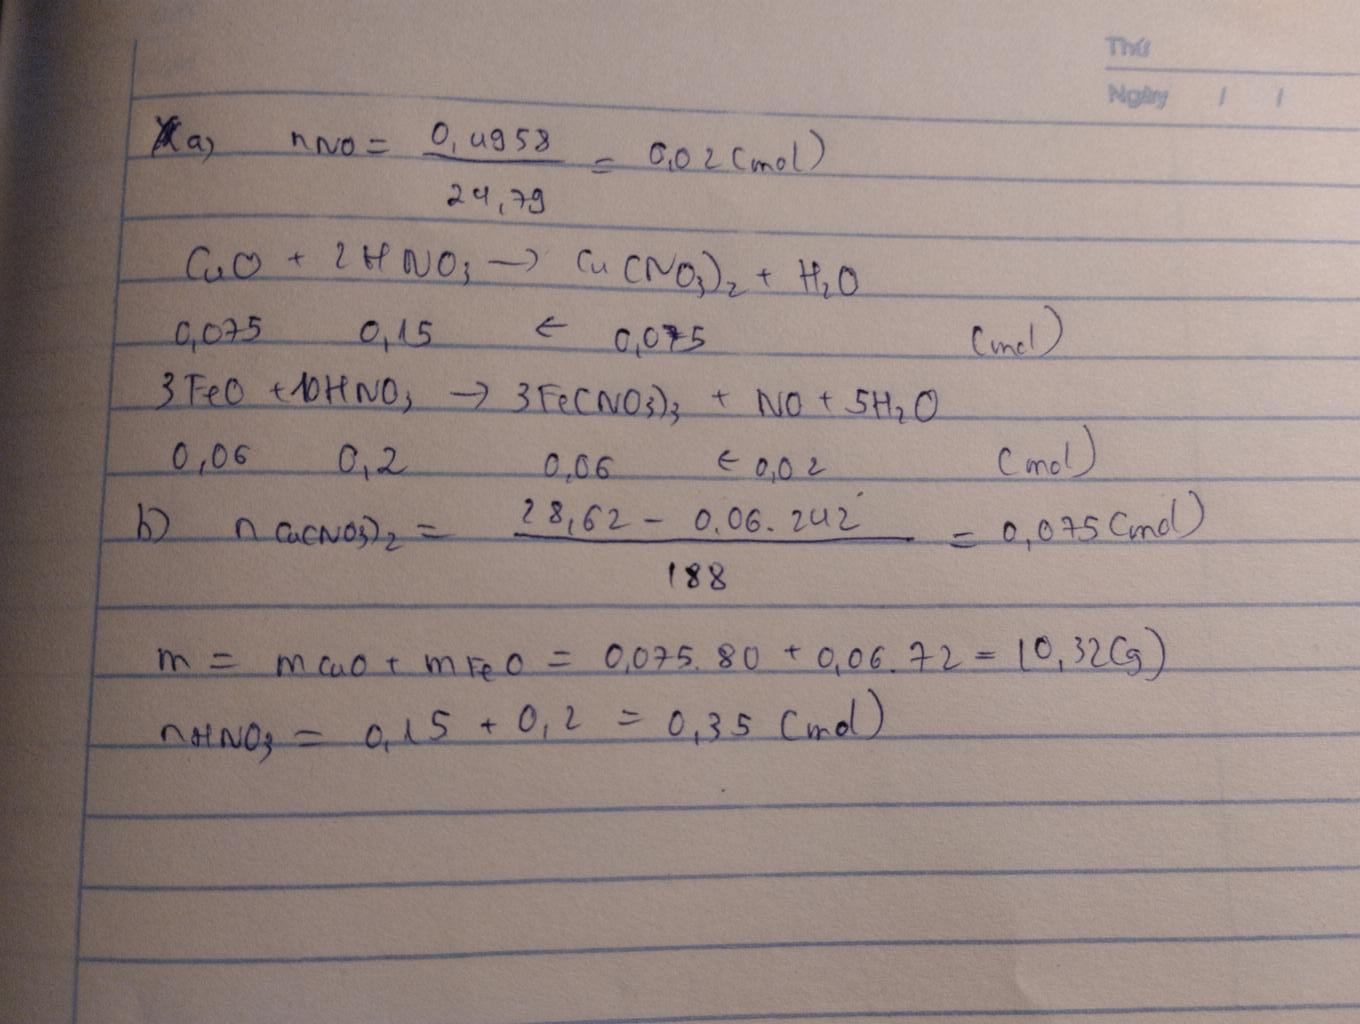 Thứ
Ngày / /
a) nNO = 0,4958 / 24,79 = 0,02 (mol)
CuO + 2HNO3 → Cu(NO3)2 + H2O
0,075 0,15 ← 0,075 (mol)
3FeO + 10HNO3 → 3Fe(NO3)3 + NO + 5H2O
0,06 0,2 0,06 ← 0,02 (mol)
b) nCu(NO3)2 = 28,62 - 0,06.242 / 188 = 0,075 (mol)
m = mCuO + mFeO = 0,075.80 + 0,06.72 = 10,32(g)
nHNO3 = 0,15 + 0,2 = 0,35 (mol)